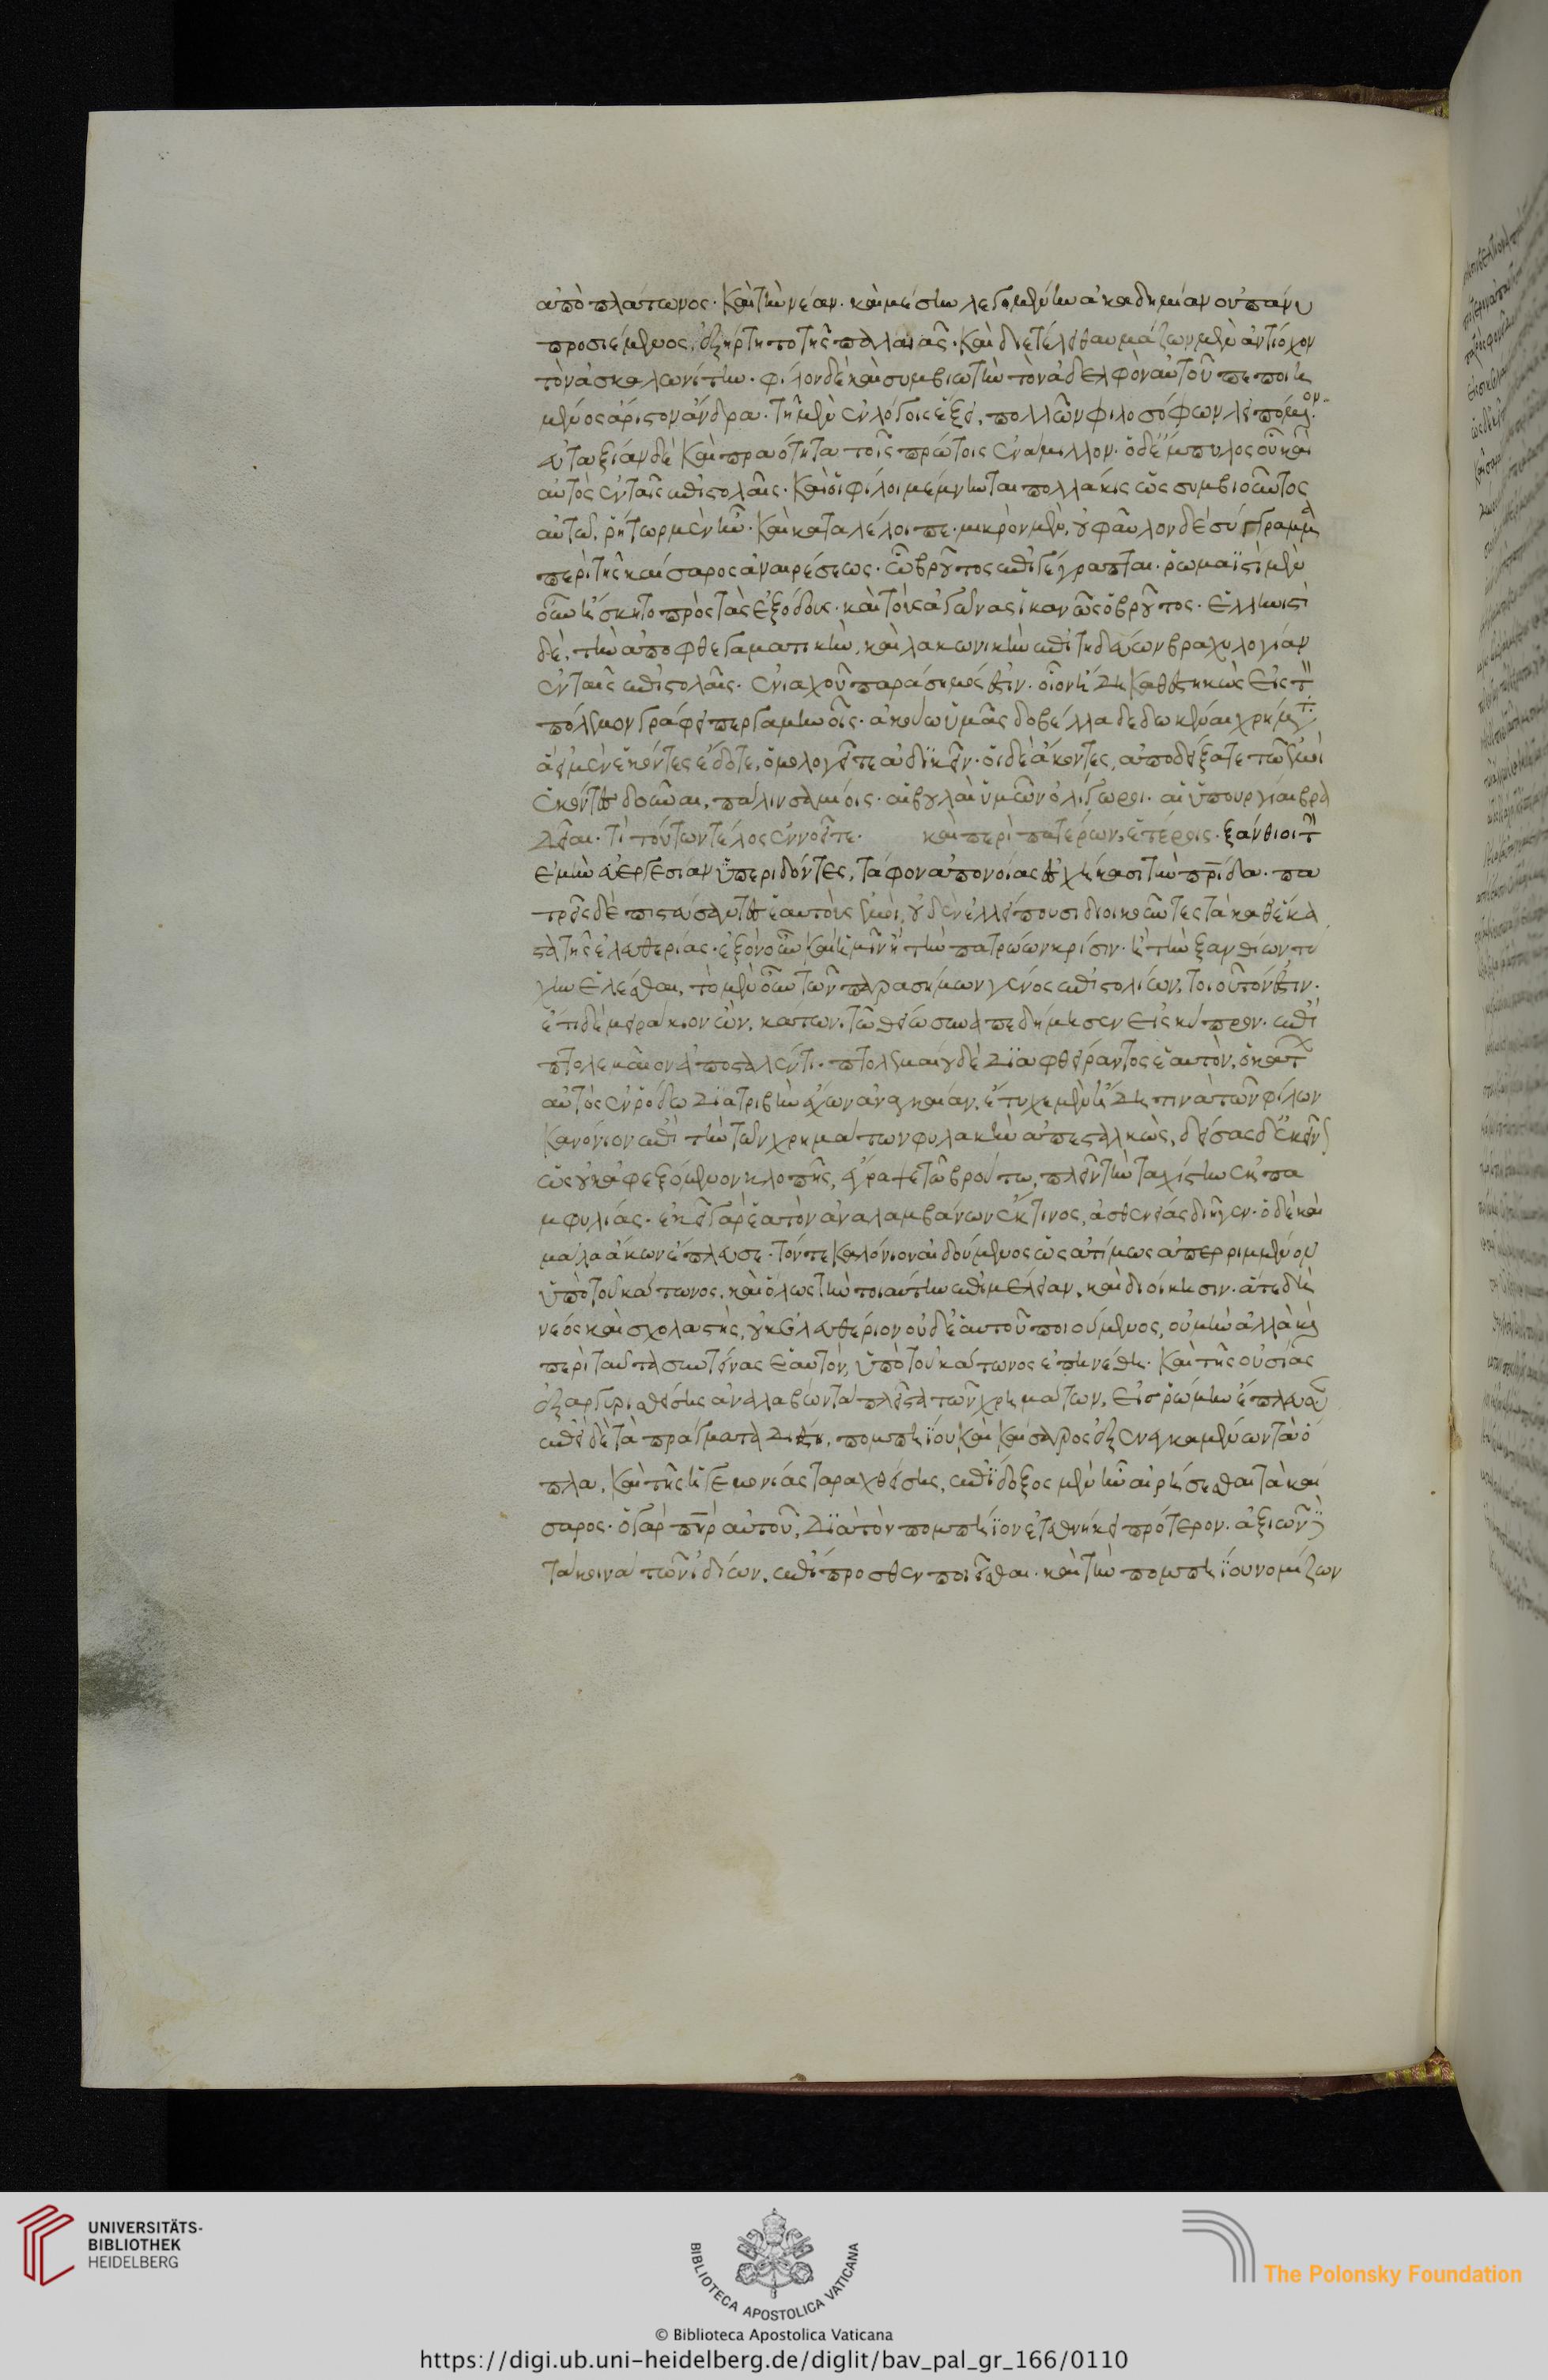 ἀπὸ πλάτωνος· καὶ τὴν νέαν· καὶ μέσην λεγομένην ἀκαδημίαν οὐ πάνυ
προσιέμενος, ἐξήρτητο τῆς παλαιᾶς· καὶ διετέλει θαυμάζων μὲν ἀντίοχον
τὸν ἀσκαλωνίτην· φίλον δὲ καὶ συμβιωτὴν τὸν ἀδελφὸν αὐτοῦ πεποιη
μένος ἄριστον ἄνδρα· τῇ μὲν ἐν λόγοις ἕξει, πολλῶν φιλοσόφων λειπόμενον·
εὐταξίαν δὲ καὶ πραότητα τοῖς πρώτοις ἐνάμιλλον· ὁ δὲ ἔμπυλος οὗ καὶ
αὐτὸς ἐν ταῖς ἐπιστολαῖς· καὶ οἱ φίλοι μέμνηνται πολλάκις ὡς συμβιοῦντος
αὐτῶ, ῥήτωρ μὲν ἦν· καὶ καταλέλοιπε· μικρὸν μὲν, οὐ φαῦλον δὲ σύγγραμμα
περὶ τῆς καίσαρος ἀναιρέσεως· ὃ βροῦτος ἐπιγέγραπται· ῥωμαϊστὶ μὲν
οὖν ἤσκητο πρὸς τὰς ἐξόδους· καὶ τοὺς ἀγῶνας ἱκανῶς ὁ βροῦτος· ἑλληνιστὶ
δὲ, τὴν ἀποφθεγματικὴν, καὶ λακωνικὴν ἐπιτηδεύων βραχυλογίαν
ἐν ταῖς ἐπιστολαῖς· ἐνιαχοῦ παράσημός ἐστιν· οἷον ἤδη καθεστηκὼς εἰς τὸν
πόλεμον γράφει περγαμηνοῖς· ἀκούω ὑμᾶς δοβέλλα δεδωκέναι χρήματα·
ἃ εἰ μὲν ἑκόντες ἔδοτε, ὁμολογεῖτε ἀδικεῖν· εἰ δὲ ἄκοντες, ἀποδείξατε τῶ ἐμοὶ
ἑκόντες δοῦναι, πάλιν σαμίοις· αἱ βουλαὶ ὑμῶν ὀλίγωροι· αἱ ὑπουργίαι βρα
δεῖαι· τί τούτων τέλος ἐννοεῖτε· καὶ περὶ πατερέων, ἑτέροις· ξάνθιοι τὴν
ἐμὴν εὐεργεσίαν ὑπεριδόντες, τάφον ἀπονοίας ἐσχήκασι τὴν πατρίδα· πα
τρεῖς δὲ πιστεύσαντες ἑαυτοὺς ἐμοὶ, οὐδὲν ἐλλείπουσι διοικοῦντες τὰ καθέκα
στα τῆς ἐλευθερίας· ἐξὸν οὖν καὶ ὑμῖν ἢ τὴν πατρώων κρίσιν· ἢ τὴν ξανθίων τύ
χην ἑλέσθαι, τὸ μὲν οὖν τῶν παρασήμων γένος ἐπιστολίων, τοιοῦτόν ἐστιν·
ἔτι δὲ μειράκιον ὢν, κάτωνι τῶ θείω συναπεδήμησεν εἰς κύπρον· ἐπὶ
πτολεμαῖον ἀποσταλέντι· πτολεμαίου δὲ διαφθείραντος ἑαυτὸν, ὁ κάτων
αὐτὸς ἐν ῥόδω διατριβὴν ἔχων ἀναγκαίαν, ἔτυχε μὲν ἤδη τινὰ τῶν φίλων
κανόνιον ἐπὶ τὴν τῶν χρημάτων φυλακὴν ἀπεσταλκὼς, δείσας δ' ἐκεῖνον
ὡς οὐκ ἀφεξόμενον κλοπῆς, ἔγραψε τῶ βρούτω, πλεῖν τὴν ταχίστην ἐκ πα
μφυλίας· ἐκεῖ γὰρ ἑαυτὸν ἀναλαμβάνων ἔκ τινος, ἀσθενείας διῆγεν· ὁ δὲ καὶ
μάλα ἄκων ἔπλευσε· τόν τε κανόνιον αἰδούμενος ὡς ἀτίμως ἀπερριμμένον
ὑπὸ τοῦ κάτωνος, καὶ ὅλως τὴν τοιαύτην ἐπιμέλειαν, καὶ διοίκησιν· ἅτε δὴ
νέος καὶ σχολαστὴς, οὐκ ἐλευθέριον οὐδ' ἑαυτοῦ ποιούμενος, οὐ μὴν ἀλλὰ καὶ
περὶ ταῦτα συντείνας ἑαυτὸν, ὑπὸ τοῦ κάτωνος ἐπῃνέθη· καὶ τῆς οὐσίας
ἐξαργυρισθείσης ἀναλαβὼν τὰ πλεῖστα τῶν χρημάτων, εἰς ῥώμην ἔπλευσεν
ἐπεὶ δὲ τὰ πράγματα διέστη, πομπηΐου καὶ καίσαρος ἐξενεγκαμένων τὰ ὅ
πλα, καὶ τῆς ἡγεμονίας ταραχθείσης, ἐπίδοξος μὲν ἦν αἱρήσεσθαι τὰ καί
σαρος· ὁ γὰρ πατὴρ αὐτοῦ, διὰ τὸν πομπήϊον ἐτεθνήκει πρότερον· ἀξιῶν δὲ
τὰ κοινὰ τῶν ἰδίων, ἐπίπροσθεν ποιεῖσθαι· καὶ τὴν πομπηΐου νομίζων
UNIVERSITÄTS-
BIBLIOTHEK
HEIDELBERG
BIBLIOTECA APOSTOLICA VATICANA
The Polonsky Foundation
© Biblioteca Apostolica Vaticana
https://digi.ub.uni-heidelberg.de/diglit/bav_pal_gr_166/0110